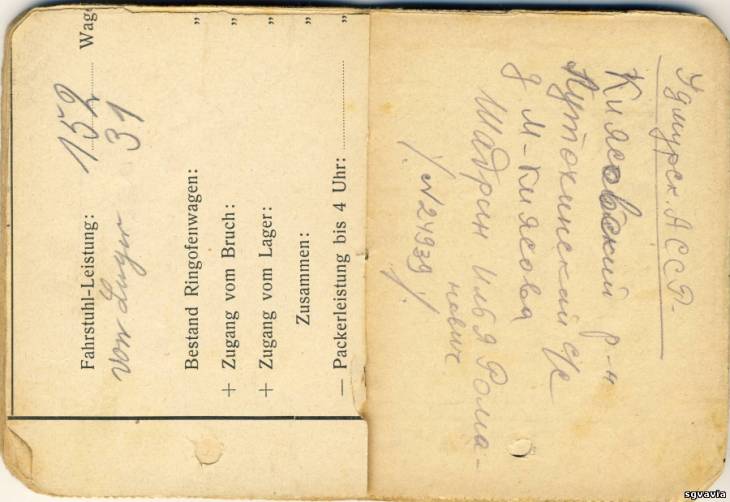 Fahrstuhl-Leistung: 152 Wag
von Lager 31
Bestand Ringofenwagen: „
+ Zugang vom Bruch: „
+ Zugang vom Lager: „
Zusammen: „
— Packerleistung bis 4 Uhr: „
Удмурск. АССР.
Киясовский р-н
Лутохинский с/с
д М-Киясова
Шадрин Илья Рома-
нович.
/. N24939 /.
sgvavia